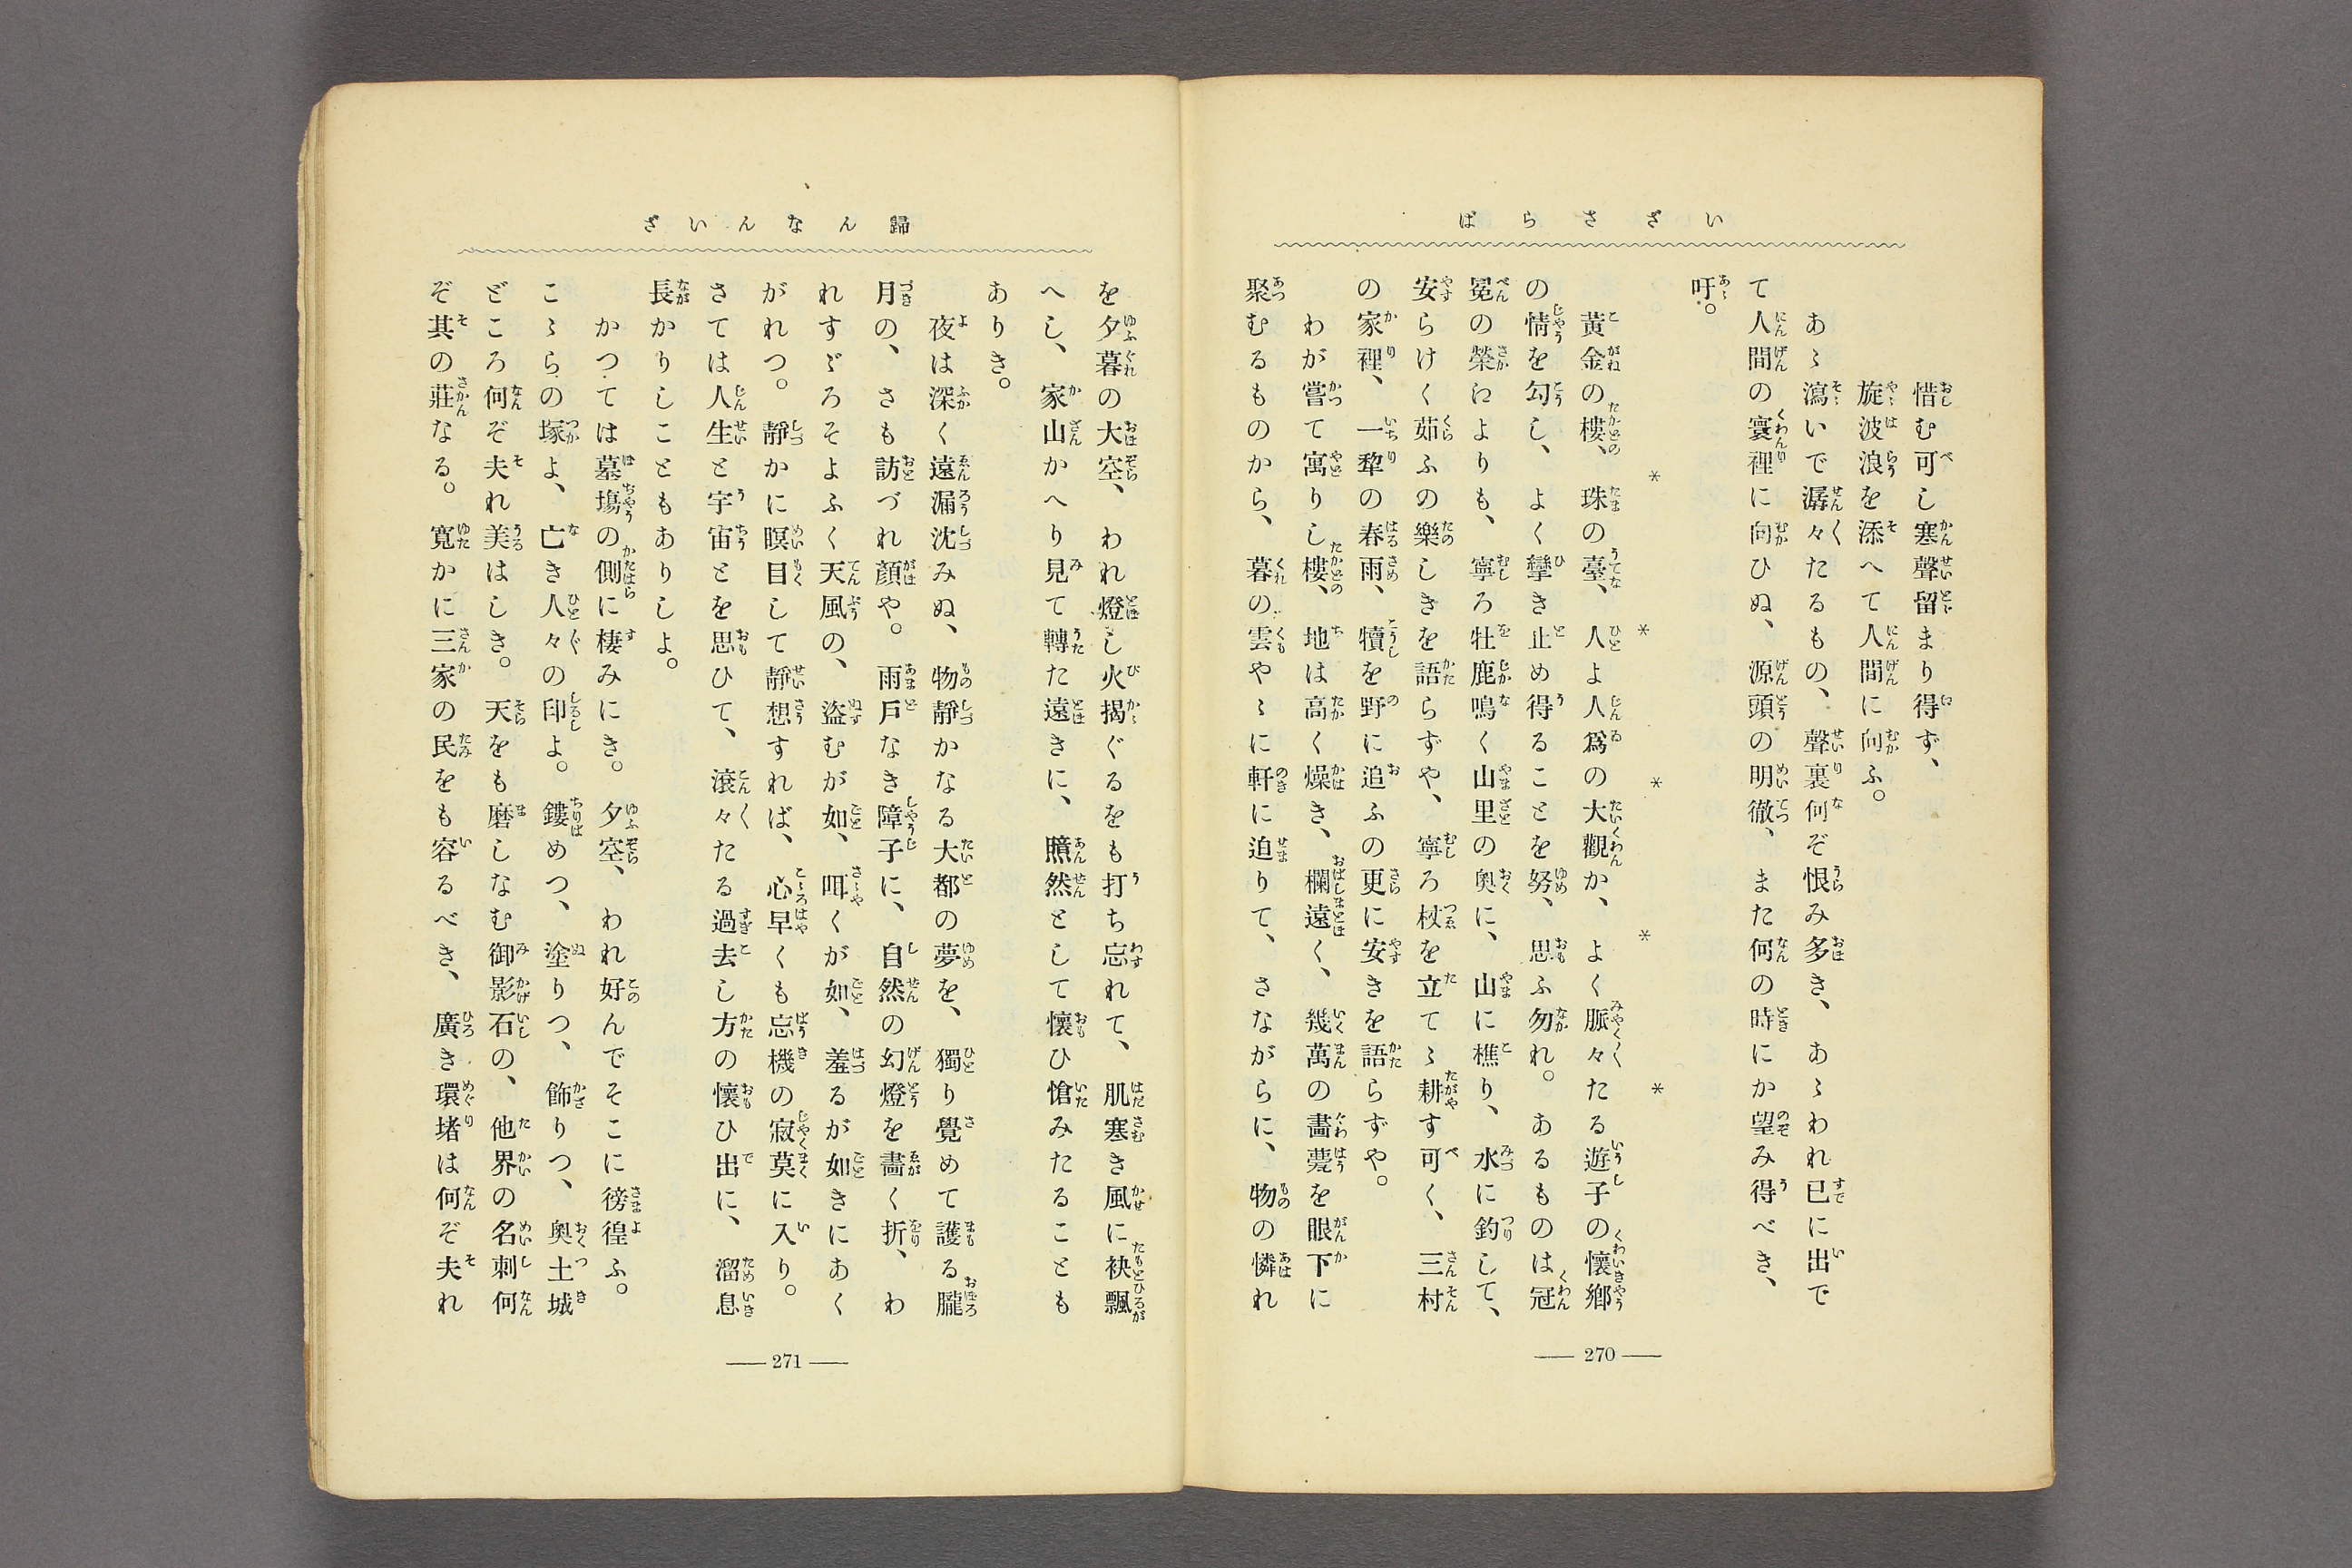 いざさらば
惜む可し寒聲留まり得ず、
旋波浪を添へて人間に向ふ。
あゝ瀉いで潺々たるもの、聲裏何ぞ恨み多き、あゝわれ已に出で
て人間の寰裡に向ひぬ、源頭の明徹、また何の時にか望み得べき、
吁。
＊　＊　＊　＊　＊
黃金の樓、珠の臺、人よ人爲の大觀か、よく脈々たる遊子の懷鄉
の情を勾し、よく攣き止め得ることを努、思ふ勿れ。あるものは冠
冕の榮によりも、寧ろ牡鹿鳴く山里の奧に、山に樵り、水に釣して、
安らけく茹ふの樂しきを語らずや、寧ろ杖を立てゝ耕す可く、三村
の家裡、一犂の春雨、犢を野に追ふの更に安きを語らずや。
わが嘗て寓りし樓、地は高く燥き、欄遠く、幾萬の畵甍を眼下に
聚むるものから、暮の雲やゝに軒に迫りて、さながらに、物の憐れ
― 270 ―
歸んなんいざ
を夕暮の大空、われ燈し火揭ぐるをも打ち忘れて、肌寒き風に袂飄
へし、家山かへり見て轉た遠きに、黯然として懷ひ愴みたることも
ありき。
夜は深く遠漏沈みぬ、物靜かなる大都の夢を、獨り覺めて護る朧
月の、さも訪づれ顏や。雨戶なき障子に、自然の幻燈を畵く折、わ
れすゞろそよふく天風の、盜むが如、咡くが如、羞るが如きにあく
がれつ。靜かに瞑目して靜想すれば、心早くも忘機の寂莫に入り。
さては人生と宇宙とを思ひて、滾々たる過去し方の懷ひ出に、溜息
長かりしこともありしよ。
かつては墓塲の側に棲みにき。夕空、われ好んでそこに徬徨ふ。
こゝらの塚よ、亡き人々の印よ。鏤めつ、塗りつ、飾りつ、奧土城
どころ何ぞ夫れ美はしき。天をも磨しなむ御影石の、他界の名刺何
ぞ其の莊なる。寬かに三家の民をも容るべき、廣き環堵は何ぞ夫れ
― 271 ―